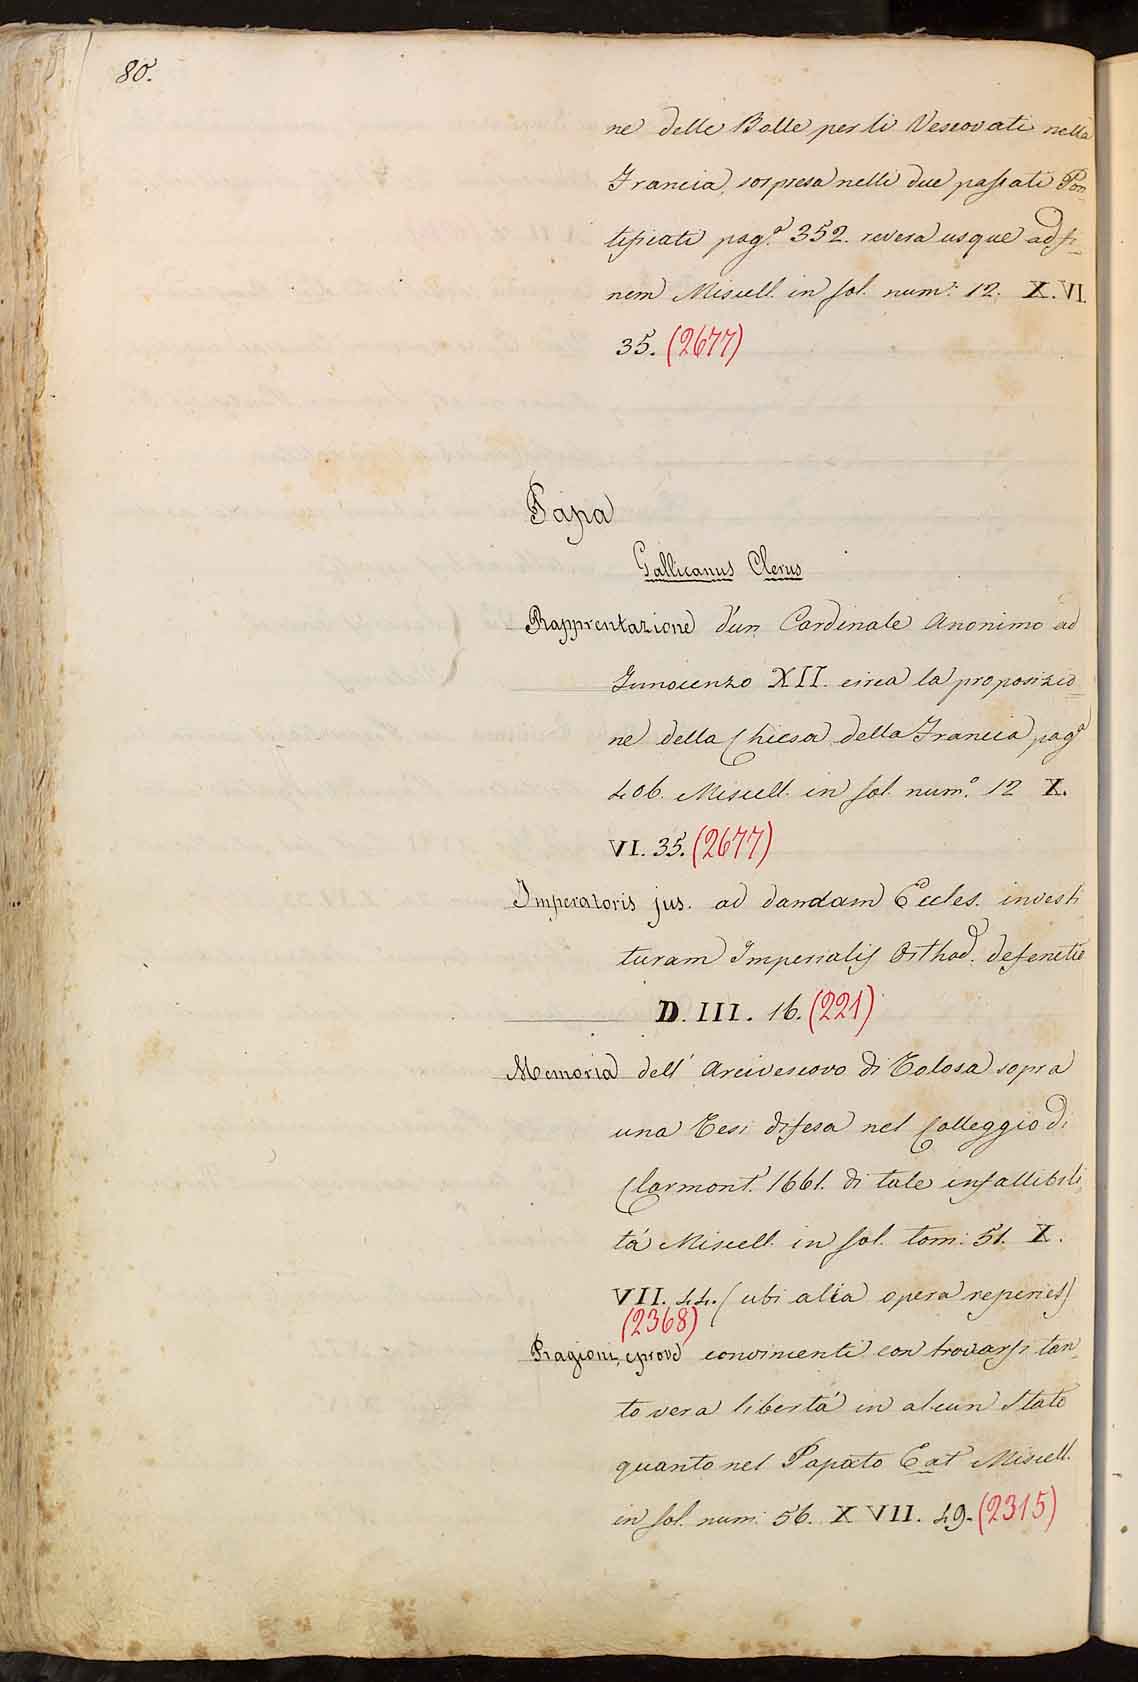 80.
ne delle Bolle per li Vescovati nella
Francia, sorpresa nelli due passati Pon
tificati pag.ª 352. revera usque ad fi-
nem Miscell. in fol. num: 12. X. VI.
35. (2677)
Papa
Gallicanus Clerus
Rapprentazione d'un Cardinale Anonimo ad
Innocenzo XII. circa la proposizio=
ne della Chiesa della Francia pagª
406. Miscell. in fol. num.° 12 X.
VI. 35. (2677)
Imperatoris jus. ad dandam Eccles. investi
turam Imperialis Orthod. defenctie
D. III. 16. (221)
Memoria dell' Arcivescovo di Tolosa sopra
una Tesi difesa nel Colleggio di
Clarmont. 1661. di tale infallibili
tá Miscell. in fol. tom: 51. X.
VII. 44. (ubi alia opera reperies)
(2368)
Ragioni, e prove convincenti con trovarsi tan
to vera libertá in alcun Stato
quanto nel Papato Eat Miscell.
in fol. num: 56. X VII. 49. (2315)